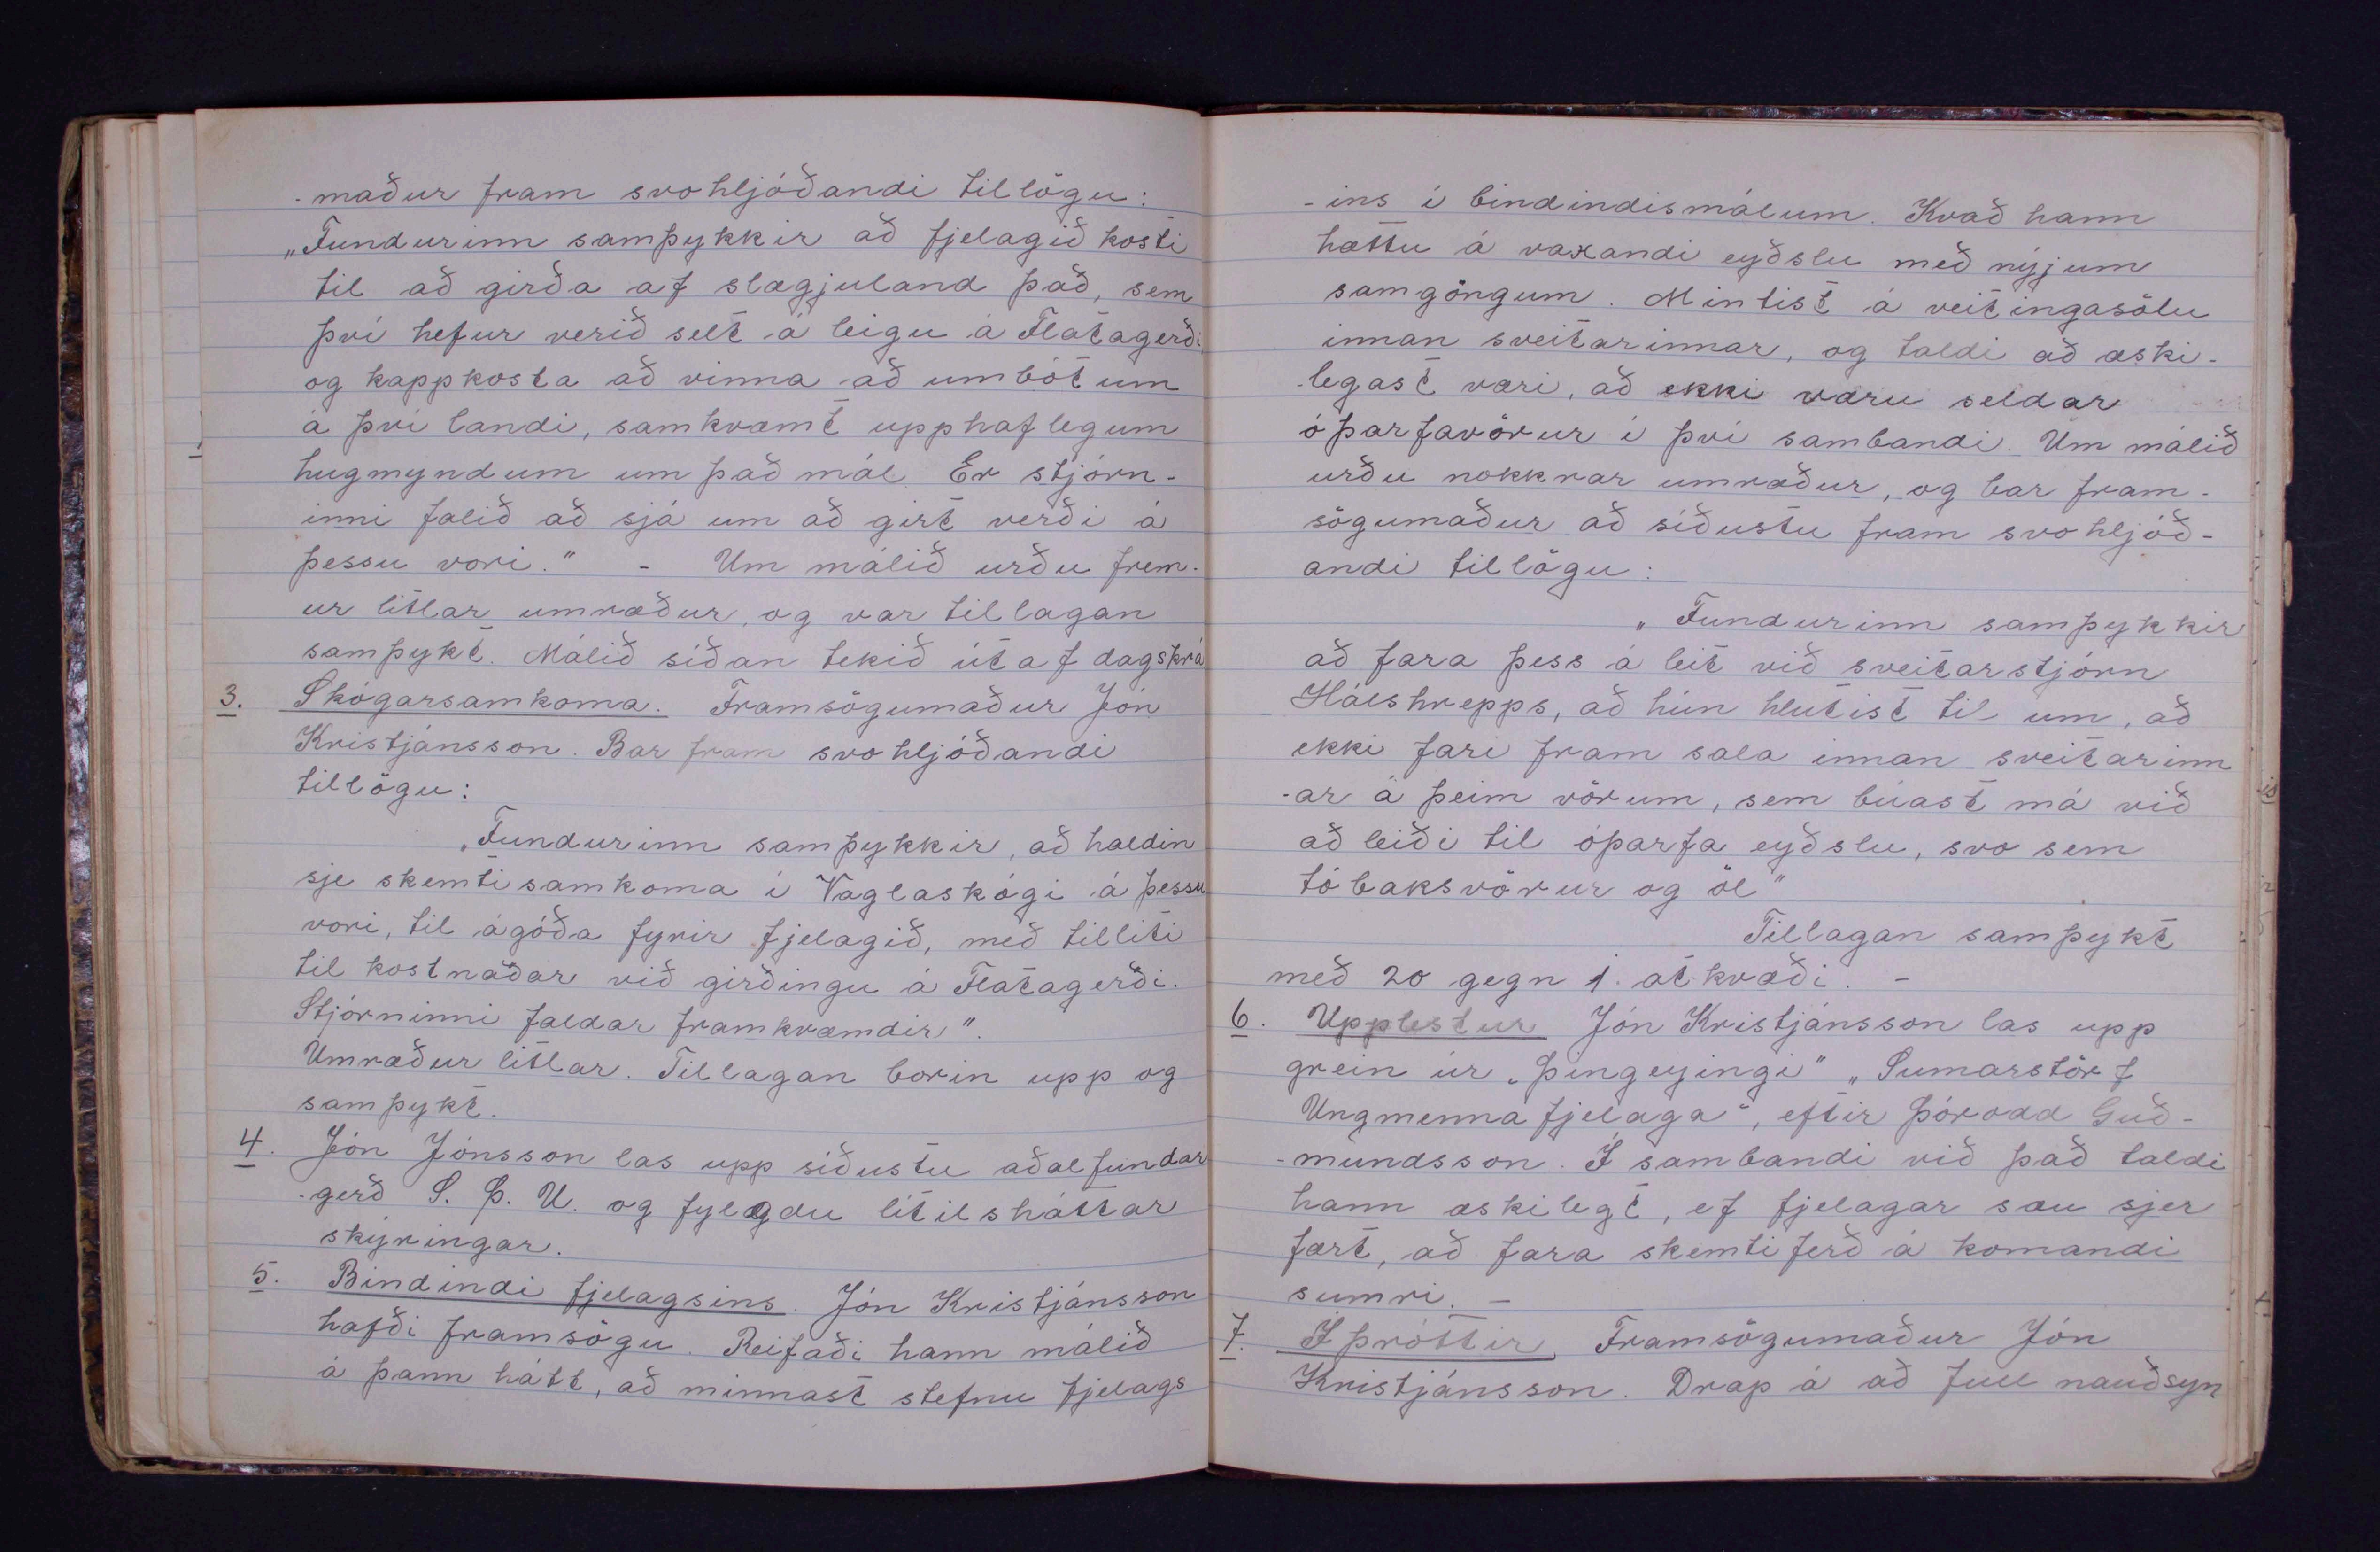 -maður fram svohljóðandi tillögu:
„Fundurinn samþykkir að fjelagið kosti
til að girða af slægjuland það, sem
því hefur verið selt á leigu á Flatagerði
og kappkosta að vinna að umbótum
á því landi, samkvæmt upphaflegum
hugmyndum um það mál. Er stjórn-
inni falið að sjá um að girt verði á
þessu vori." - Um málið urðu frem-
ur litlar umræður, og var tillagan
samþykt. Málið síðan tekið út af dagskrá
3. Skógarsamkoma. Framsögumaður Jón
Kristjánsson. Bar fram svohljóðandi
tillögu:
„Fundurinn samþykkir, að haldin
sje skemtisamkoma í Vaglaskógi á þessu
vori, til ágóða fyrir fjelagið, með tilliti
til kostnaðar við girðingu á Flatagerði.
Stjórninni faldar framkvæmdir".
Umræður litlar. Tillagan borin upp og
samþykt.
4. Jón Jónsson las upp síðustu aðalfundar
-gerð S. Þ. U. og fylgdu lítilsháttar
skýringar.
5. Bindindi fjelagsins. Jón Kristjánsson
hafði framsögu. Reifaði hann málið
á þann hátt, að minnast stefnu fjelags
-ins í bindindismálum. Kvað hann
hættu á vaxandi eyðslu með nýjum
samgöngum. Mintist á veitingasölu
innan sveitarinnar, og taldi að æski-
-legast væri, að ekki væru seldar
óþarfavörur í því sambandi. Um málið
urðu nokkrar umræður, og bar fram-
sögumaður að síðustu fram svohljóð-
andi tillögu:
„Fundurinn samþykkir
að fara þess á leit við sveitarstjórn
Hálshrepps, að hún hlutist til um, að
ekki fari fram sala innan sveitarinn
-ar á þeim vörum, sem búast má við
að leiði til óþarfa eyðslu, svo sem
tóbaksvörur og öl"
Tillagan samþykt
með 20 gegn 1. atkvæði. -
6. Upplestur Jón Kristjánsson las upp
grein úr „Þingeyingi" „Sumarstörf
Ungmennafjelaga", eftir Þórodd Guð-
-mundsson. Í sambandi við það taldi
hann æskilegt, ef fjelagar sæu sjer
fært, að fara skemtiferð á komandi
sumri. -
7. Íþróttir. Framsögumaður Jón
Kristjánsson. Drap á að full nauðsyn